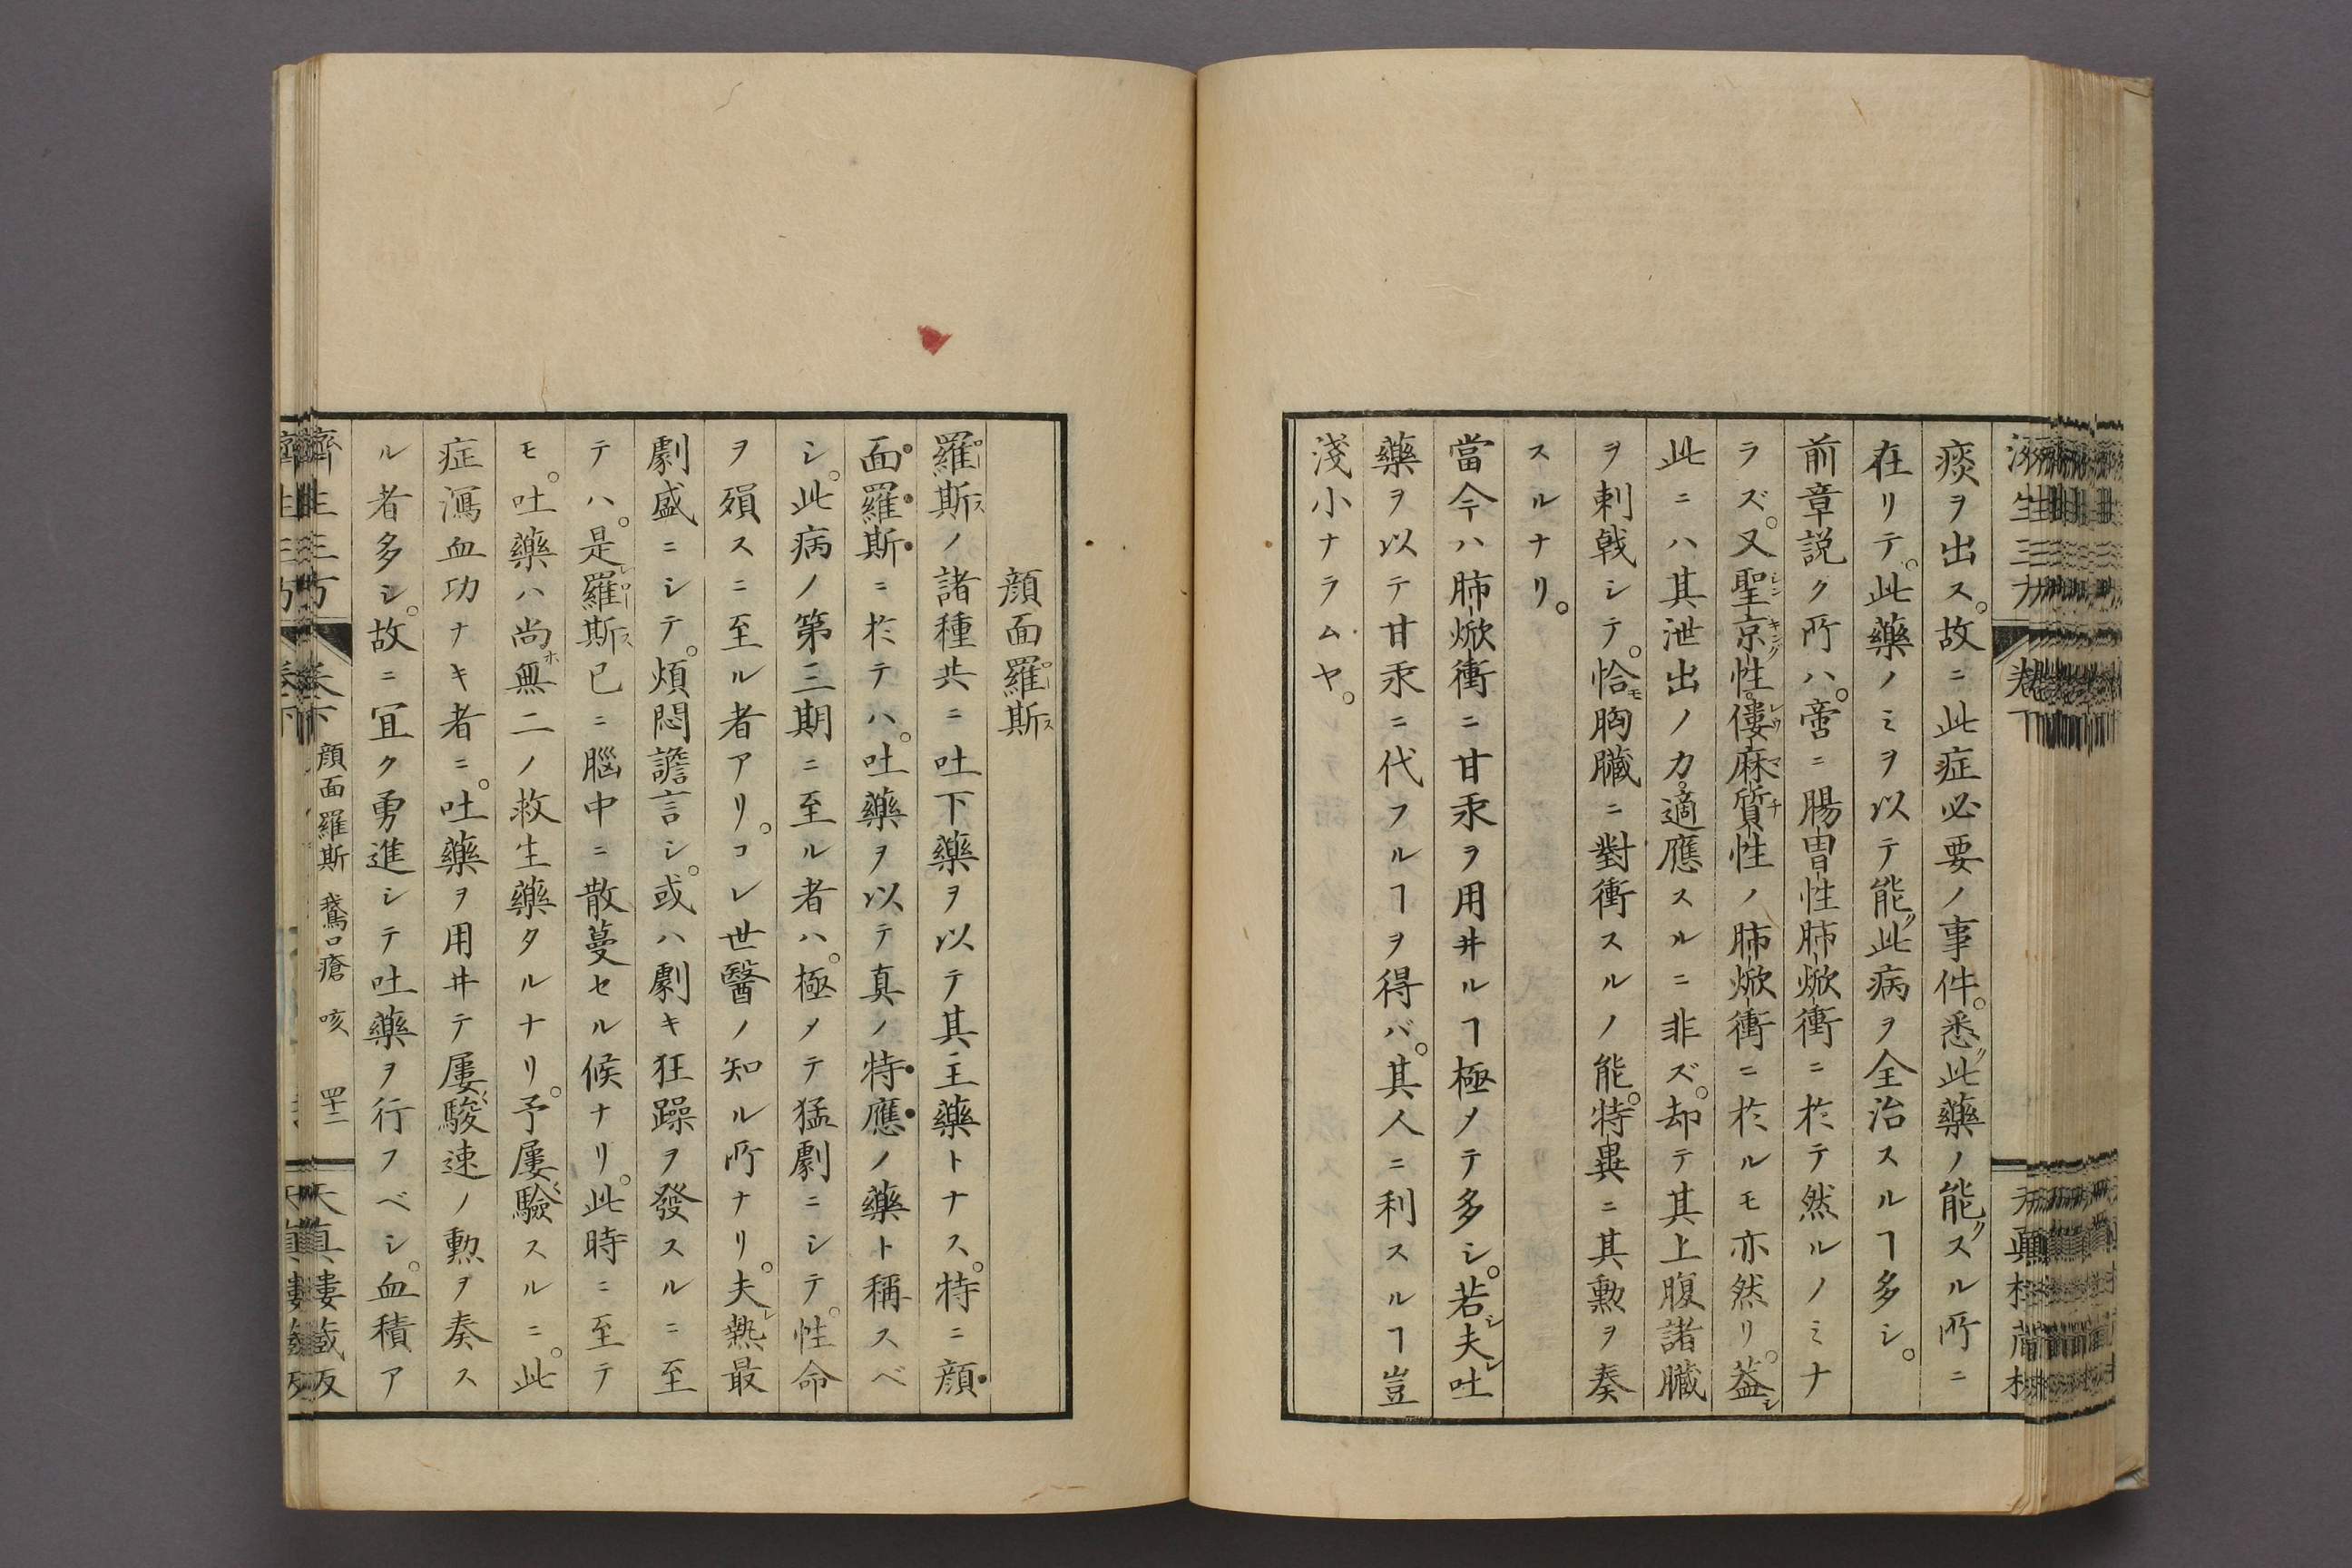 痰ヲ出ス。故ニ此症必要ノ事件。悉ク此藥ノ能クスル所ニ
在リテ。此藥ノミヲ以テ能ク此病ヲ全治スルヿ多シ。
前章説ク所ハ。啻ニ腸胃性肺焮衝ニ於テ然ルノミナ
ラズ。又聖京性。僂麻質性ノ肺焮衝ニ於ルモ亦然リ。蓋シ
此ニハ其泄出ノ力。適應スルニ非ズ。却テ其上腹諸臓
ヲ刺戟シテ。恰モ胸臓ニ對衝スルノ能。特異ニ其勲ヲ奏
スルナリ。
當今ハ肺焮衝ニ甘汞ヲ用井ルヿ極メテ多シ。若シ夫レ吐
藥ヲ以テ甘汞ニ代フルヿヲ得バ。其人ニ利スルヿ豈
淺小ナラムヤ。
顔面羅斯
羅斯ノ諸種共ニ吐下藥ヲ以テ其主藥トナス。特ニ顔
面羅斯ニ於テハ。吐藥ヲ以テ真ノ特應ノ藥ト稱スベ
シ。此病ノ第三期ニ至ル者ハ。極メテ猛劇ニシテ。性命
ヲ殞スニ至ル者アリ。コレ世醫ノ知ル所ナリ。夫レ熱最
劇盛ニシテ。煩悶譫言シ。或ハ劇キ狂躁ヲ發スルニ至
テハ。是レ羅斯已ニ腦中ニ散蔓セル候ナリ。此時ニ至テ
モ。吐藥ハ尚ホ無二ノ救生藥タルナリ。予屢〻驗スルニ。此
症瀉血功ナキ者ニ。吐藥ヲ用井テ屢〻駿速ノ勲ヲ奏ス
ル者多シ。故ニ冝ク勇進シテ吐藥ヲ行フベシ。血積ア
濟生三方 卷下 顔面羅斯 鵞口瘡 咳 四十二 天真樓蔵版